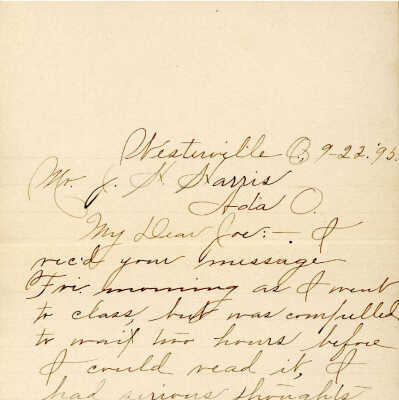 Westerville O. 9-22-'95.
Mr. J. H. Harris
Ada O.
My Dear Joe:- I
rec'd your message
Fri. morning as I went
to class, but was compelled
to wait two hours before
I could read it, I
had serious thoughts